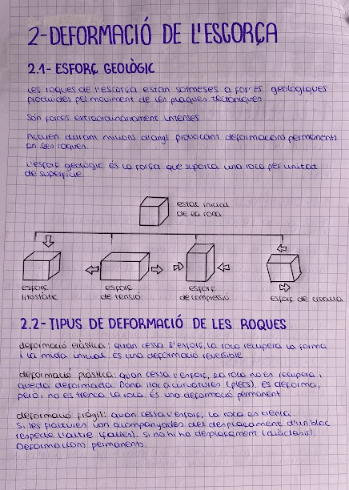 2-DEFORMACIÓ DE L'ESCORÇA
2.1- ESFORÇ GEOLÒGIC
Les roques de l'escorça estan sotmeses a forces geològiques
produïdes pel moviment de les plaques tectòniques
Són forces extraordinàriament intenses
Actuen durant milions d'anys provocant deformacions permanents
en les roques.
L'esforç geològic és la força que suporta una roca per unitat
de superfície
estat inicial
de la roca
esforç
litostàtic
esforç
de tensió
esforç
de compressió
esforç de cisalla
2.2- TIPUS DE DEFORMACIÓ DE LES ROQUES
deformació elàstica: quan cessa l'esforç, la roca recupera la forma
i la mida inicial. És una deformació reversible
deformació plàstica: quan cessa l'esforç, la roca no es recupera i
queda deformada. Dona lloc a curvatures (plecs). Es deforma,
però no es trenca la roca. És una deformació permanent
deformació fràgil: quan cessa l'esforç, la roca es trenca.
Si les fractures van acompanyades del desplaçament d'un bloc
respecte l'altre (falles), si no hi ha desplaçament (diàclasi).
Deformacions permanents.